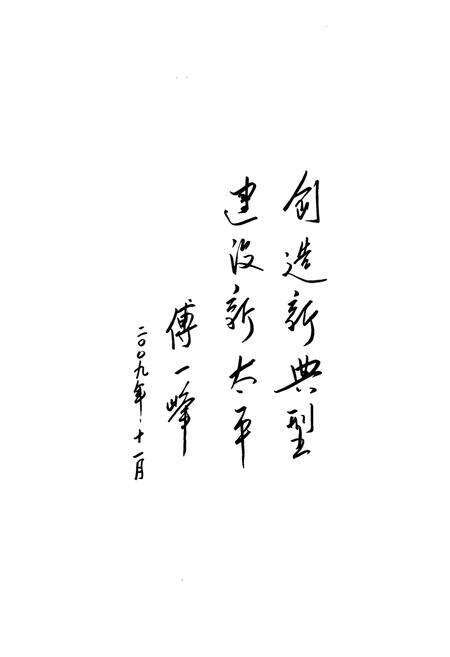 创造新典型
建设新太平
傅一峰
二〇〇九年·十一月